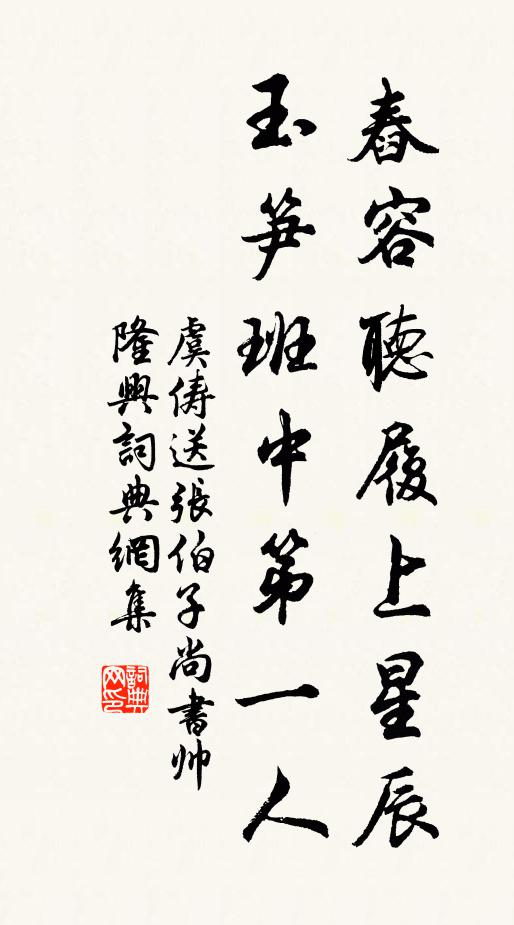 舂容聽履上星辰
玉笋班中第一人
虞儔送張伯子尚書帥
隆興詞典網集
詞典网印